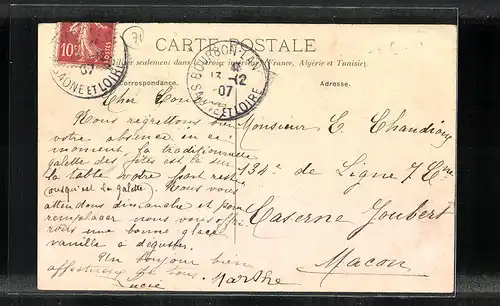 71
CARTE POSTALE
Correspondance.
Adresse.
(France, Algérie et Tunisie).
10
POSTES
SAONE ET LOIRE
BOURBON-LANCY
13 -12
07
SAONE ET LOIRE
Cher
Nous regrettons bien
votre absence en ce
moment la traditionnelle
galette des fêtes est là sur
la table votre part reste
(ousqu'est la galette). Nous vous
attendons dimanche et pour
remplacer nous vous offri
rons une bonne glace
vanille à déguster.
Un bonjour bien
affectueux de tous
Lucie Marthe
Monsieur E. Chandioux
134e de Ligne 7 Cie
Caserne Joubert
Macon